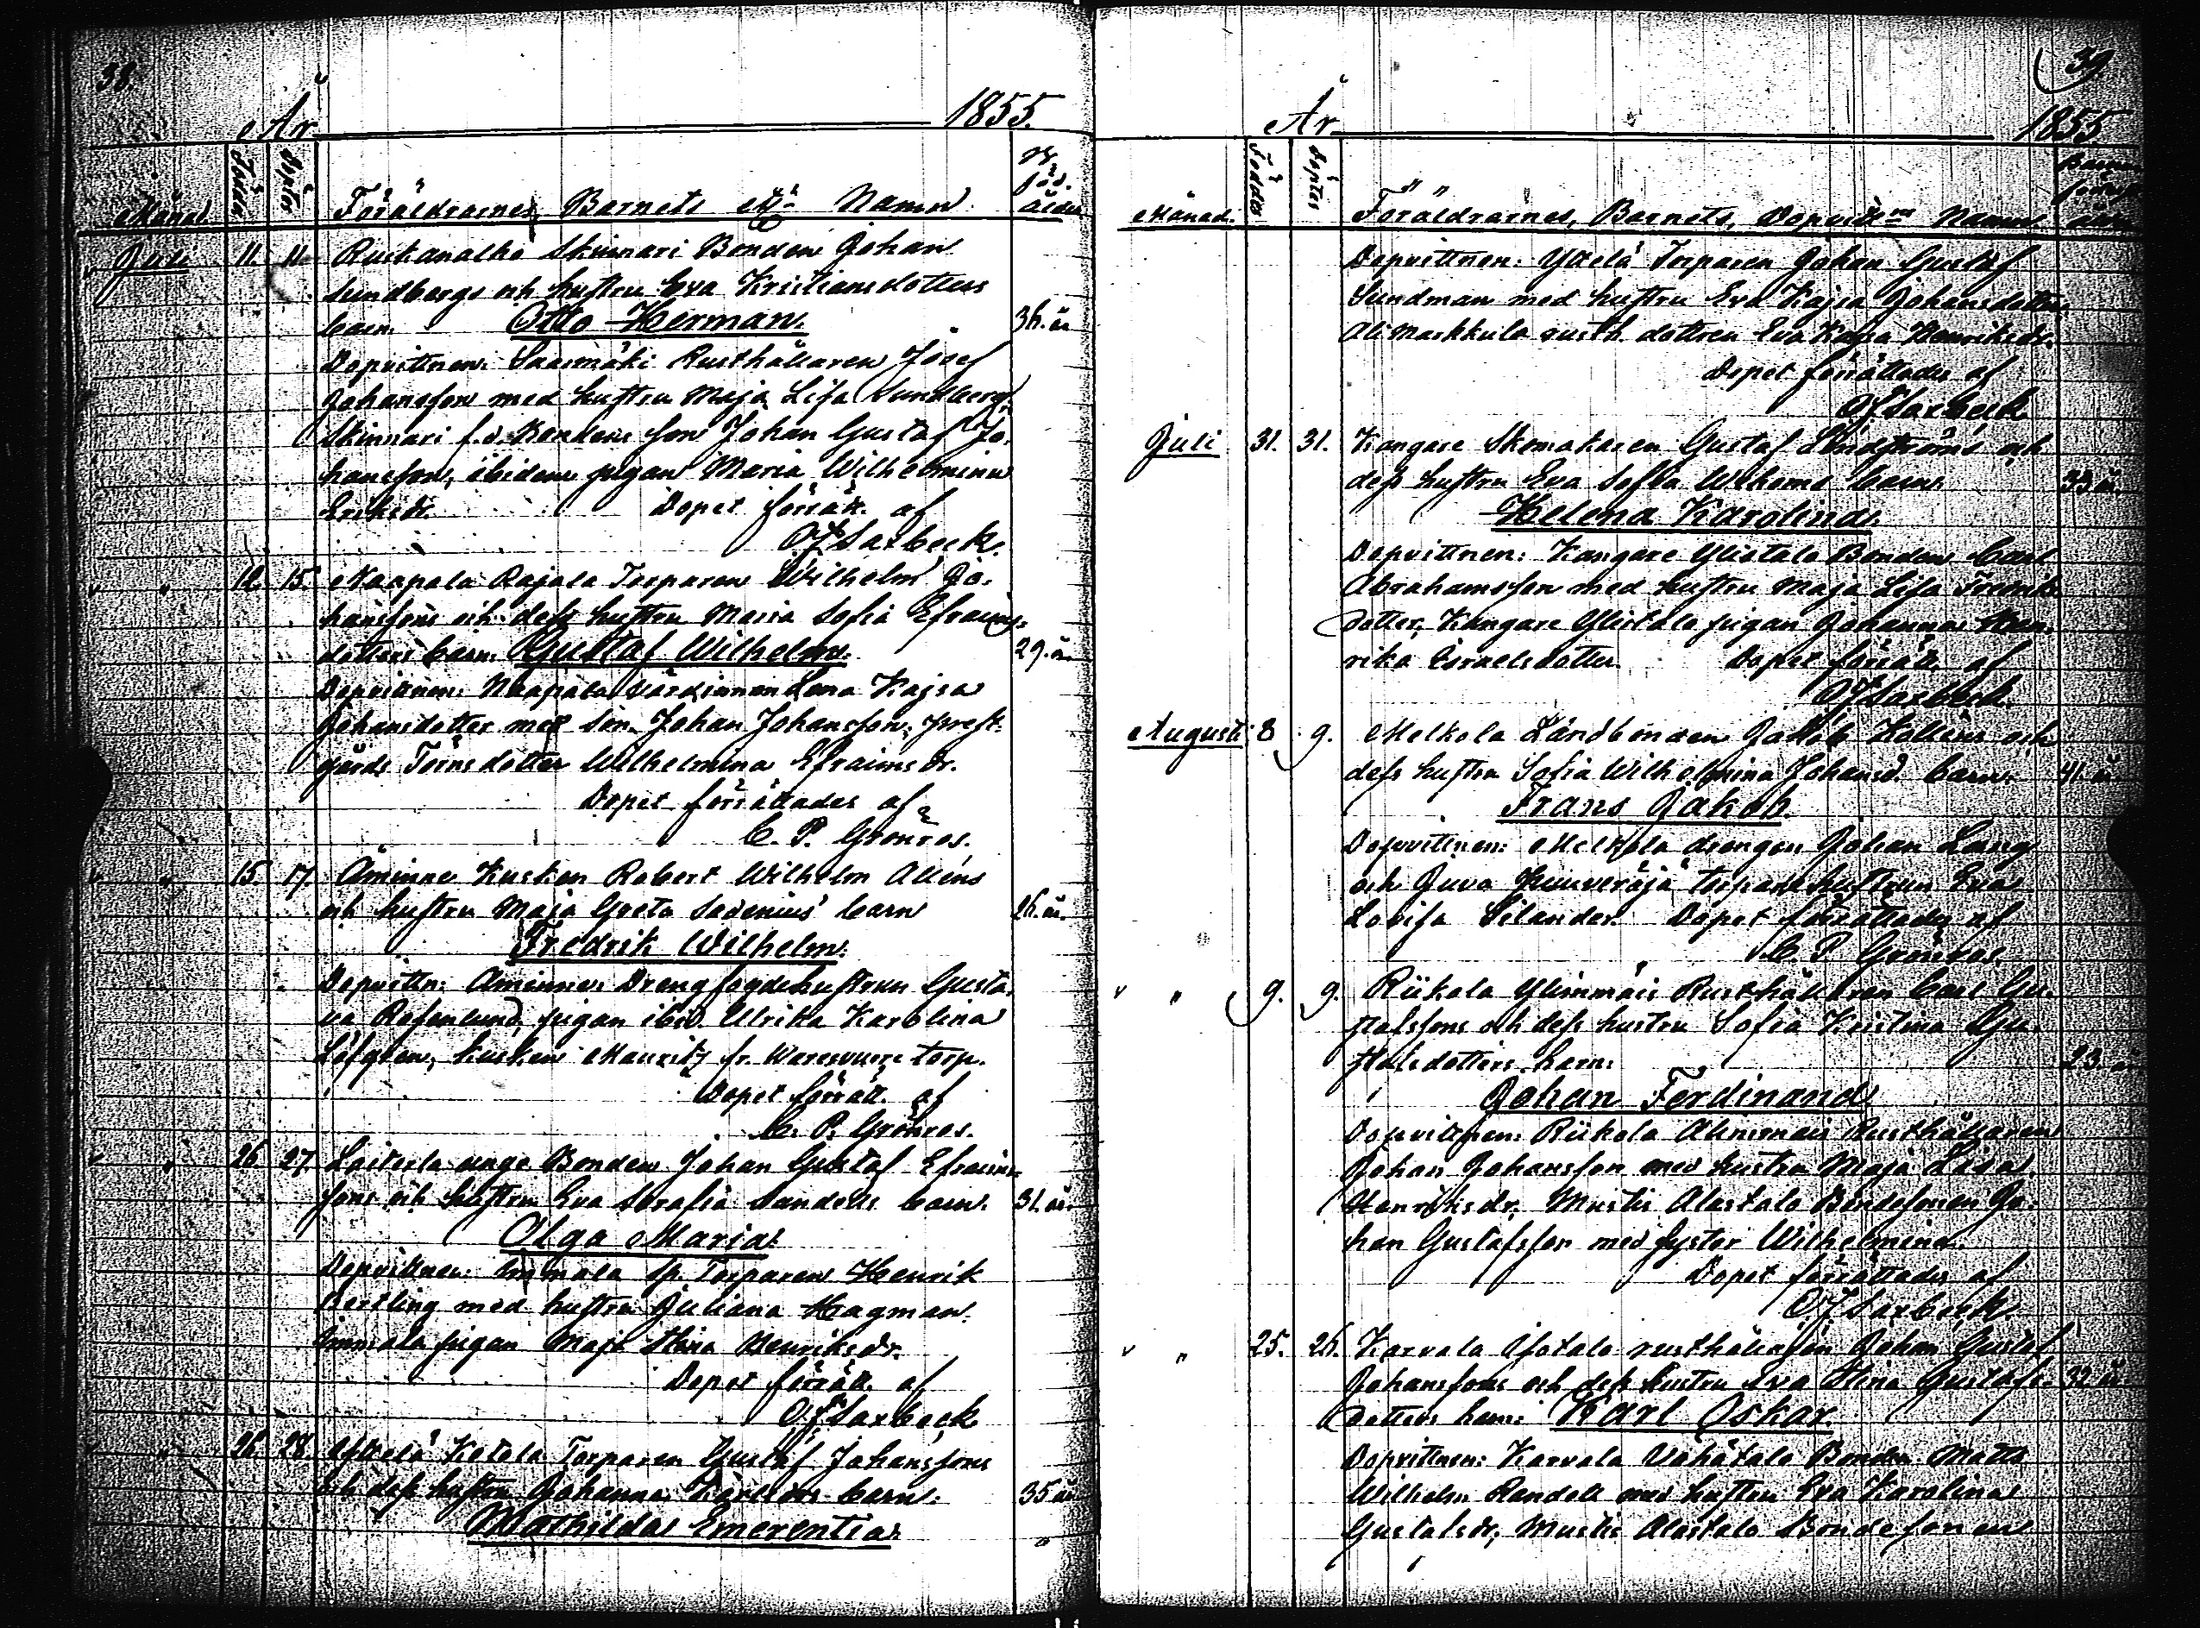 38.
År 1855.
Månad Födda Döpta Föräldrarnes, Barnets &c Namn ålder
Juli 11. 11. Ruskanalho Skinnari Bonden Johan
Sundbergs och hustru Eva Kristiansdotters
barn. Otto Herman. 36. år
Dopvittnen: Saarmäki Rusthållaren Josef
Johansson med hustru Maja Lisa Sundberg,
Skinnari f.d. Bondens son Johan Gustaf Jo-
hansson, ibidem pigan Maria Wilhelmina
Eriksdr. Dopet förrätt. af
O J Saxbeck.
12. 15. Naapala Rajala Torparen Wilhelm Jo-
hanssons och dess hustru Maria Sofia Efraims-
dotters barn. Gustaf Wilhelm. 29. år.
Dopvittnen: Naapala Värdinnan Lena Kajsa
Johansdotter med son Johan Johansson, prest-
gårds Törns dotter Wilhelmina Efraimsdr.
Dopet förrättades af
C. P. Grönros.
15. 17. Åminne Kusken Robert Wilhelm Aléns
och hustru Maja Greta Savenius' barn 26. år.
Fredrik Wilhelm.
Dopvittn: Åminne Drängfogdehustrun Gusta-
va Rosenlund, pigan ibid. Ulrika Karolina
Löfgren, kusken Mauritz fr. torp.
Dopet förrätt. af
C. P. Grönros.
26. 27. Laiterla unge Bonden Johan Gustaf Efraims-
sons och hustru Eva Serafia Sundells barn. 31. år.
Olga Maria.
Dopvittnen: Immala Sp. Torparen Henrik
Bertling med hustru Juliana Hagman.
Immala pigan Maja Stina Henriksdr.
Dopet förrätt. af
O J Saxbeck
26. 28. Yttelä Ketola Torparen Gustaf Johanssons
och dess hustru Johanna Karlsdrs barn. 35 år
Mathilda Emerentia.
39
År 1855
Månad. Föddes Döptes Föräldrarnes, Barnets, Dopvittn:ns Namn
Dopvittnen: Yttelä Torparen Johan Gustaf
Sundman med hustru Eva Kajsa Johansdotter,
Ali Markkula rusth. dottren Eva Kajsa Henriksdr.
Dopet förrättades af
O J Saxbeck
Juli 31. 31. Kangare Skomakaren Gustaf Lindströms och
dess hustru Eva Sofia Widboms barn. 33 år.
Helena Karolina.
Dopvittnen: Kangare Ylistalo Bonden Carl
Abrahamsson med hustru Maja Lisa Fredriks-
dotter, Kangare Ylistalo pigan Johanna Hen-
rika Israelsdotter. Dopet förrätt. af
O J Saxbeck
Augusti 8 9. Melkola Landbonden Jakob Kalléns och
dess hustru Sofia Wilhelmina Johansd. barn. 41. år
Frans Jakob.
Dopvittnen: Melkola drengen Johan Lång
och Juva torparehustrun Eva
Lovisa Silander. Dopet förrättades af
C. P. Grönros
" 9. 9. Riikala Ylimmäis Rusthållaren Carl Gu-
stafssons och dess hustru Sofia Kristina Gu-
stafsdotters barn: 23. år
Johan Ferdinand
Dopvittnen: Riikala Alimmais Rusthållaren
Johan Johansson med hustru Maja Lisa
Henriksdr. Mustis Alastalo Bondesonen Jo-
han Gustafsson med syster Wilhelmina.
Dopet förrättades af
O J Saxbeck.
" 25. 26. Karvala Isotalo rusthållarson Johan Gustaf
Johanssons och dess hustru Eva Stina Gustafs- 32 år
dotters barn: Karl Oskar
Dopvittnen: Karvala Vähätalo Bonden Matts
Wilhelm Randell med hustru Eva Karolina
Gustafsdr, Mustis Alastalo Bondesonen